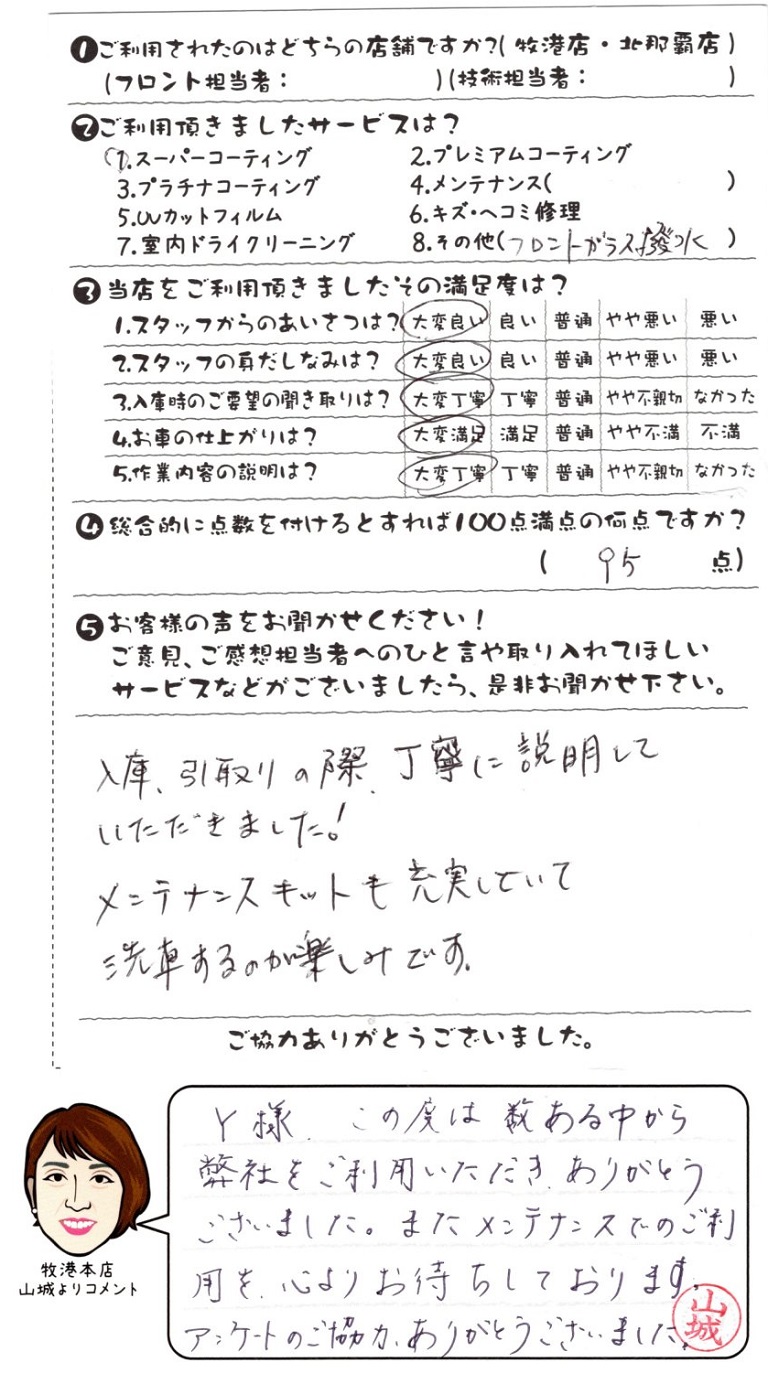 ❶ご利用されたのはどちらの店舗ですか?(牧港店・北那覇店)
(フロント担当者: )(技術担当者: )
❷ご利用頂きましたサービスは?
1.スーパーコーティング 2.プレミアムコーティング
3.プラチナコーティング 4.メンテナンス( )
5.UVカットフィルム 6.キズ・ヘコミ修理
7.室内ドライクリーニング 8.その他(フロントガラス撥水)
❸当店をご利用頂きましたその満足度は?
1.スタッフからのあいさつは? 大変良い 良い 普通 やや悪い 悪い
2.スタッフの身だしなみは? 大変良い 良い 普通 やや悪い 悪い
3.入庫時のご要望の聞き取りは? 大変丁寧 丁寧 普通 やや不親切 なかった
4.お車の仕上がりは? 大変満足 満足 普通 やや不満 不満
5.作業内容の説明は? 大変丁寧 丁寧 普通 やや不親切 なかった
❹総合的に点数を付けるとすれば100点満点の何点ですか?
( 95 点)
❺お客様の声をお聞かせください!
ご意見、ご感想担当者へのひと言や取り入れてほしい
サービスなどがございましたら、是非お聞かせ下さい。
入庫、引取りの際、丁寧に説明して
いただきました!
メンテナンスキットも充実していて
洗車するのが楽しみです。
ご協力ありがとうございました。
Y様、この度は数ある中から
弊社をご利用いただき、ありがとう
ございました。またメンテナンスでのご利
用を、心よりお待ちしております。
アンケートのご協力、ありがとうございました。
山城
牧港本店
山城よりコメント